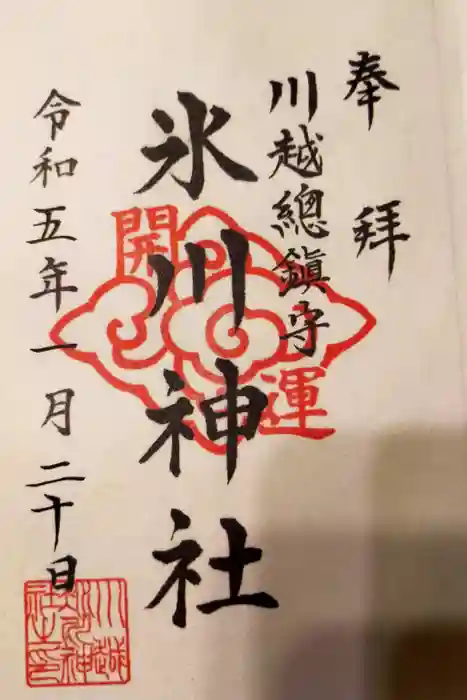 奉拝
川越總鎮守
氷川神社
開運
令和五年一月二十日
川越氷川神社之印